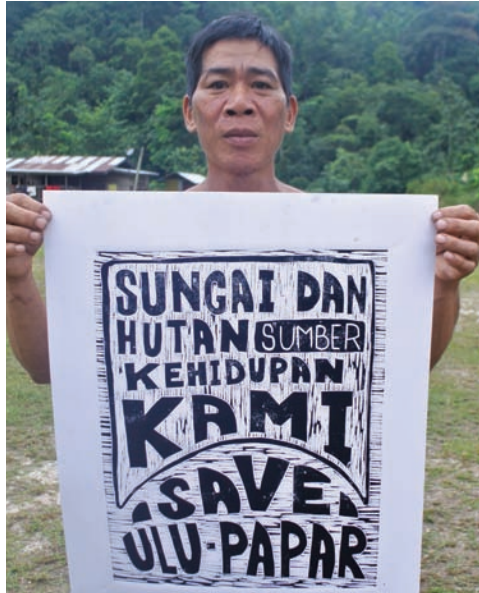 SUNGAI DAN
HUTAN SUMBER
KEHIDUPAN
KAMI
SAVE
ULU-PAPAR